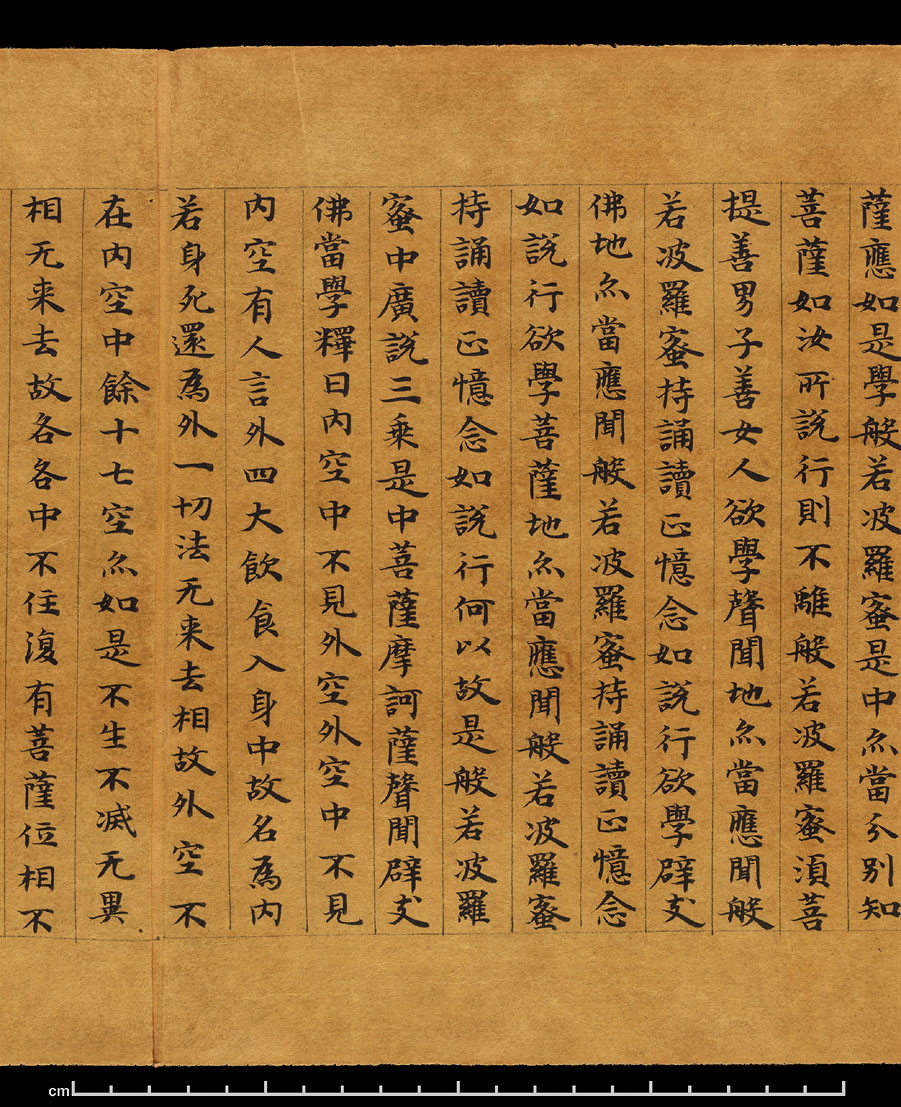 薩應如是學般若波羅蜜是中亦當分別知
菩薩如汝所說行則不離般若波羅蜜須菩
提善男子善女人欲學聲聞地亦當應聞般
若波羅蜜持誦讀正憶念如說行欲學辟支
佛地亦當應聞般若波羅蜜持誦讀正憶念
如說行欲學菩薩地亦當應聞般若波羅蜜
持誦讀正憶念如說行何以故是般若波羅
蜜中廣說三乘是中菩薩摩訶薩聲聞辟支
佛當學釋曰內空中不見外空外空中不見
內空有人言外四大飲食入身中故名為內
若身死還為外一切法无來去相故外空不
在內空中餘十七空亦如是不生不滅无異
相无来去故各各中不住復有菩薩位相不
cm